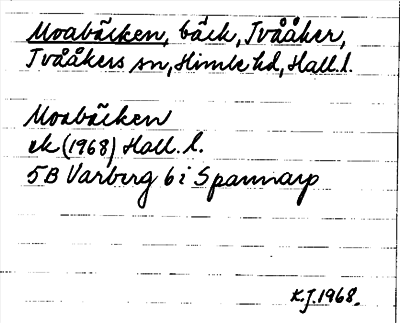 Moabäcken, bäck, Tvååker,
Tvååkers sn, Himle hd, Hall. l.
Moabäcken
ek (1968) Hall. l.
5B Varberg 6i Spannarp
K.J. 1968.